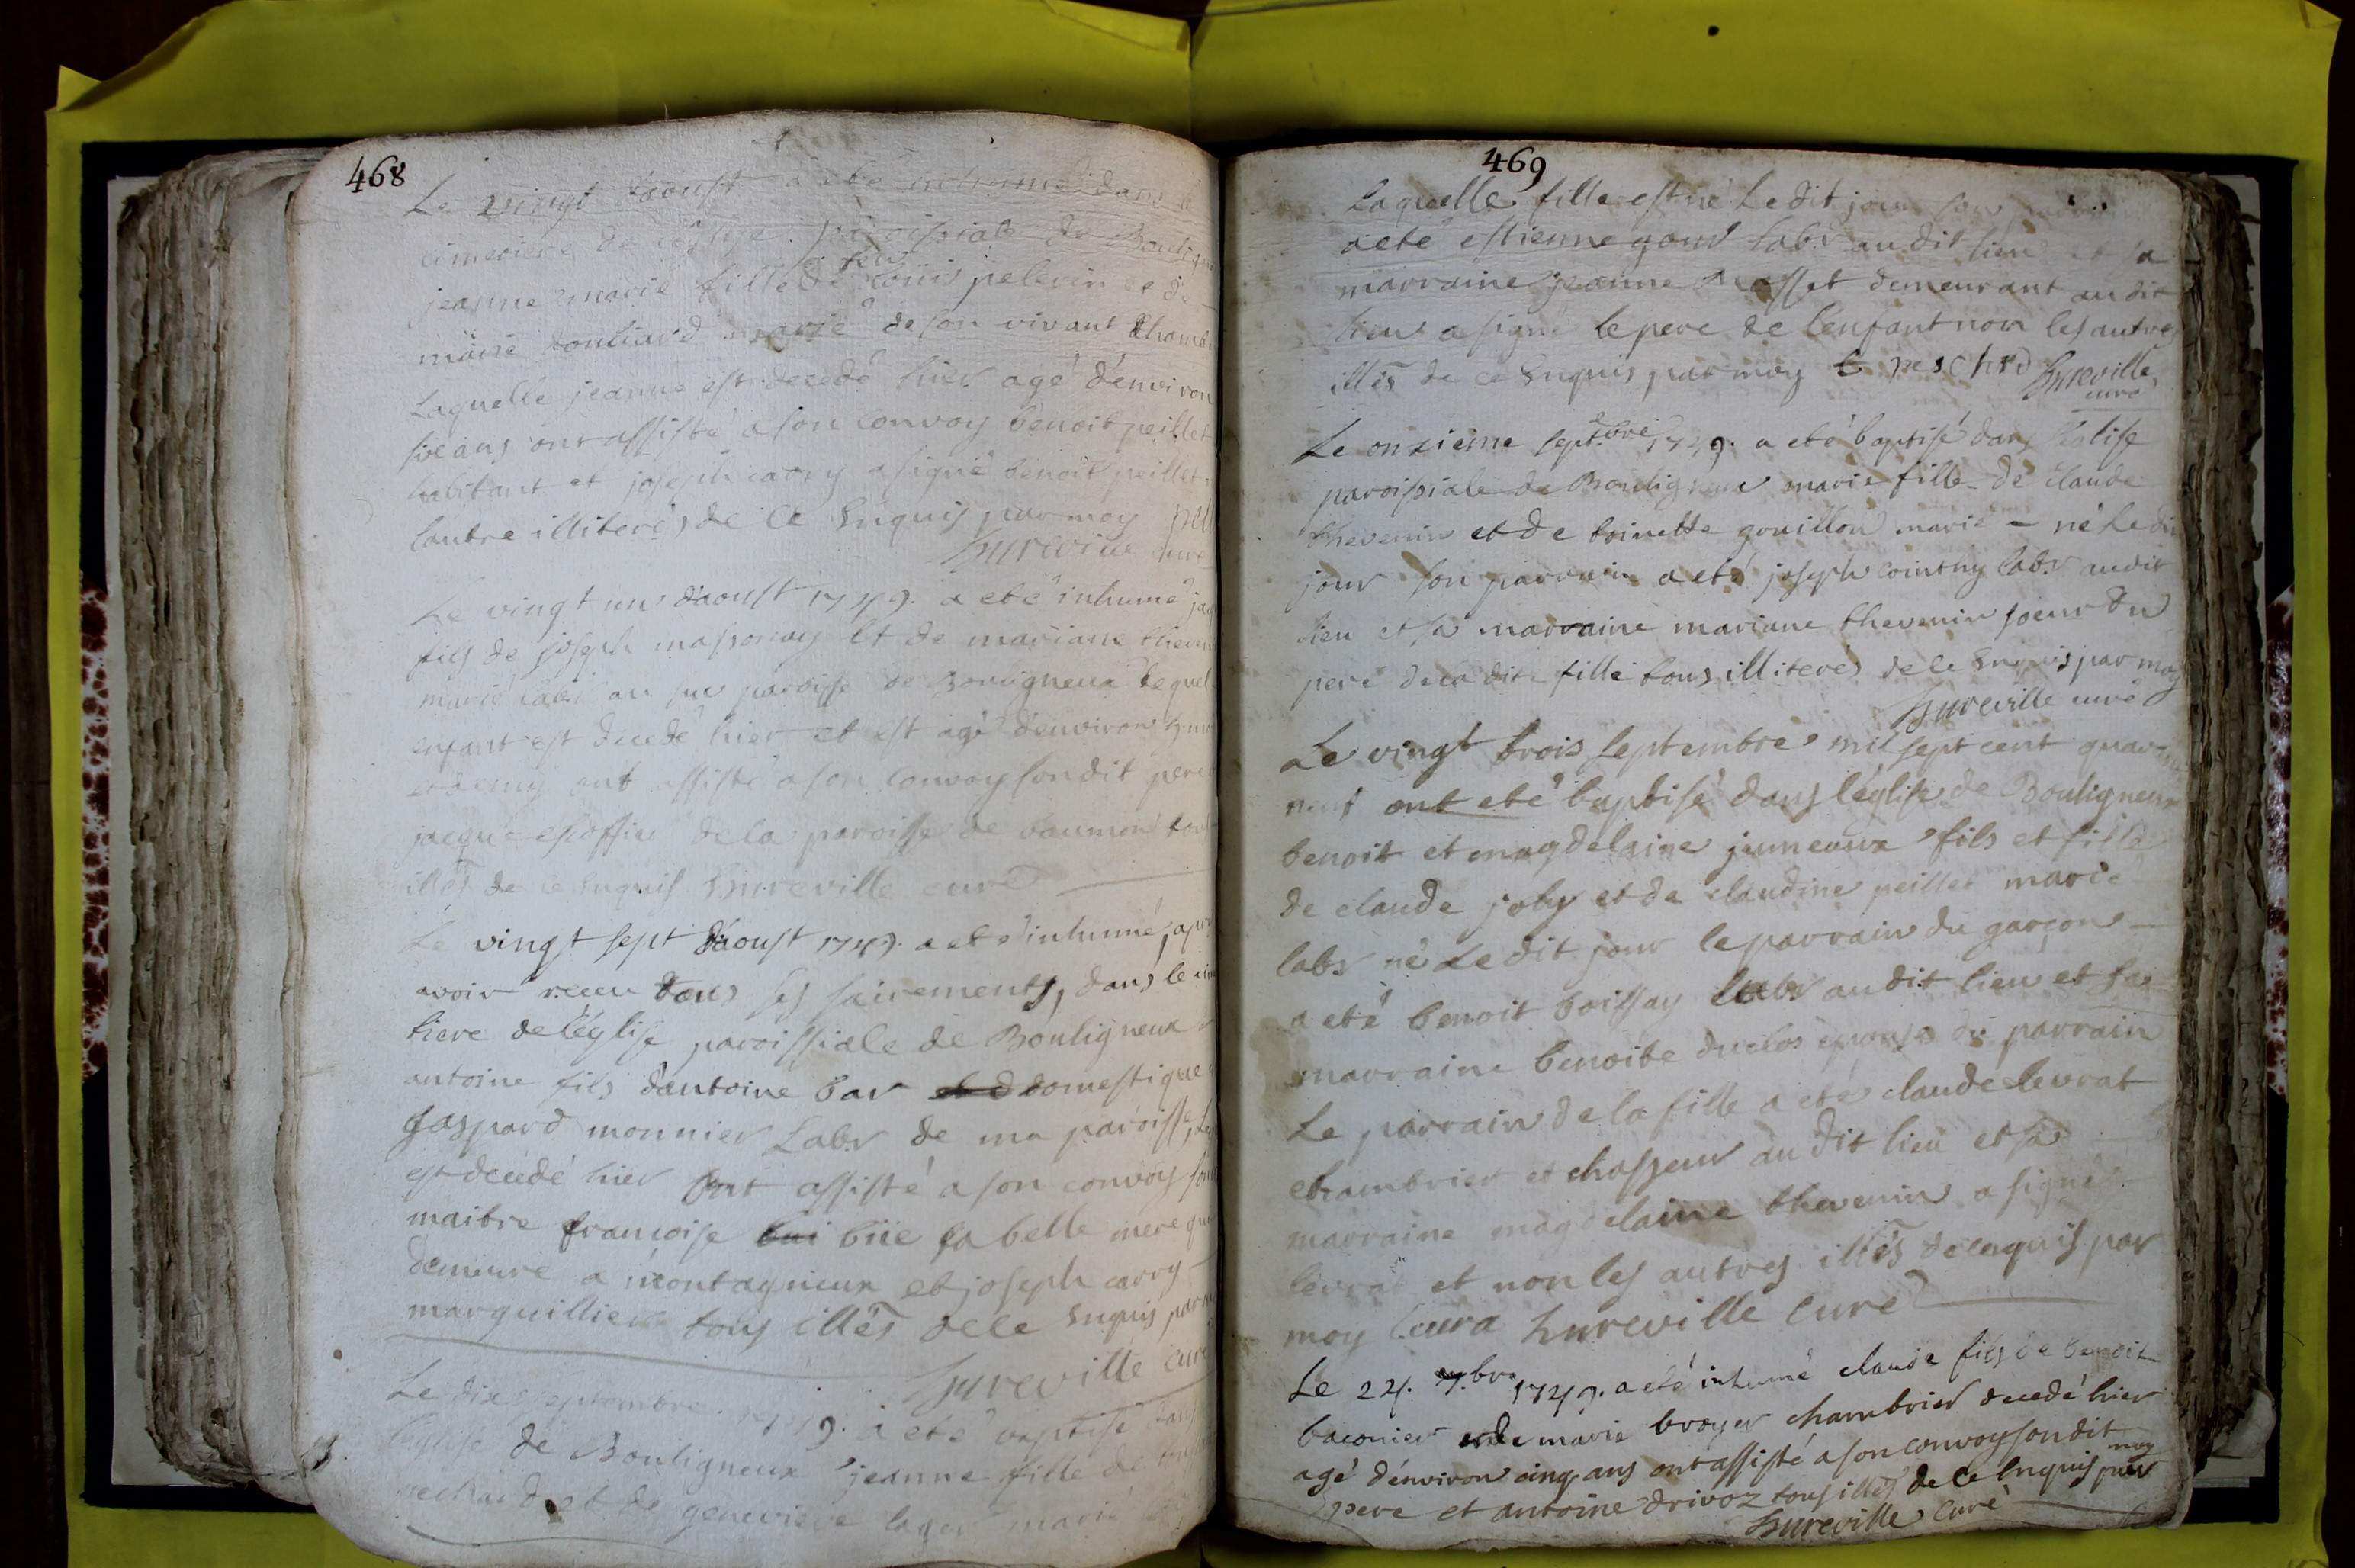 468
Le vingt daoust a été inhumé dans le
cimetiere de l'église paroissiale de Bouligneux
jeanne marie fille de feu louis pelerin et de
marie marié de son vivant
Laquelle jeanne est decedé hier agé d'environ
six ans ont assisté a son convoy benoit peillet
habitant et joseph carry a signé benoit peillet
lautre illiteré de ce Enquis par moy
hureville curé
Le vingt un daoust 1749. a eté inhumé
fils de joseph massonay et de mariane theven
marié labr au paroisse de Bouligneux Lequel
enfant est decedé hier et est agé d'environ
et demy ont assisté a son convoy son dit pere
jacque de la paroisse de baumon tous
illés de ce Enquis hureville curé
Le vingt sept daoust 1749. a eté inhumé, apr
avoir receu tous ses sacrements, dans le cim
tiere de l'église paroissiale de Bouligneux
antoine fils dantoine bar domestique
gaspard monnier Labr de ma paroisse, Le
est decédé hier ont assisté a son convoy son
maitre françoise biie sa belle mere qui
demeure a montagneux et joseph carry
marguillier tous illés de ce Enquis par m
hureville curé
Le dix septembre 1749. a eté baptisé dans
l'église de Bouligneux jeanne fille de
pechard et de genevieve lager marié
469
Laquelle fille est né Le dit jour son parrain
a eté estienne goud labr au dit lieu et sa
marraine jeanne demeurant au dit
lieu a signé le pere de l'enfant non les autres
illés de ce Enquis par moy C pechrd hureville
curé
Le onzieme septbre 1749. a eté baptisé dans l'Eglise
paroissiale de Bouligneux marie fille de claude
thevenin et de toinette gouillon marié - né Le dit
jour son parrain a eté joseph cointny labr audit
lieu et sa marraine mariane thevenin soeur du
pere de la dite fille tous illiteres de ce Enquis par moy
hureville curé
Le vingt trois septembre mil sept cent quarante
neuf ont eté baptisé dans l'église de Bouligneux
benoit et magdelaine jumeaux fils et fille
de claude joly et de claudine peillet marié
labr né Le dit jour le parrain du garçon
a eté benoit boissay labr au dit lieu et sa
marraine benoite duclos epouse du parrain
Le parrain de la fille a eté claude levrat
chambrier et chasseur au dit lieu et sa
marraine magdelaine thevenin a signé
levrat et non les autres illés de ce enquis par
moy hureville curé
Le 24. 7.bre 1749. a eté inhumé claude fils de benoit
baconier et de marie broyer chambrier decedé hier
agé d'environ cinq ans ont assisté a son convoy son dit
pere et antoine drivoz tous illés de ce Enquis par moy
hureville curé